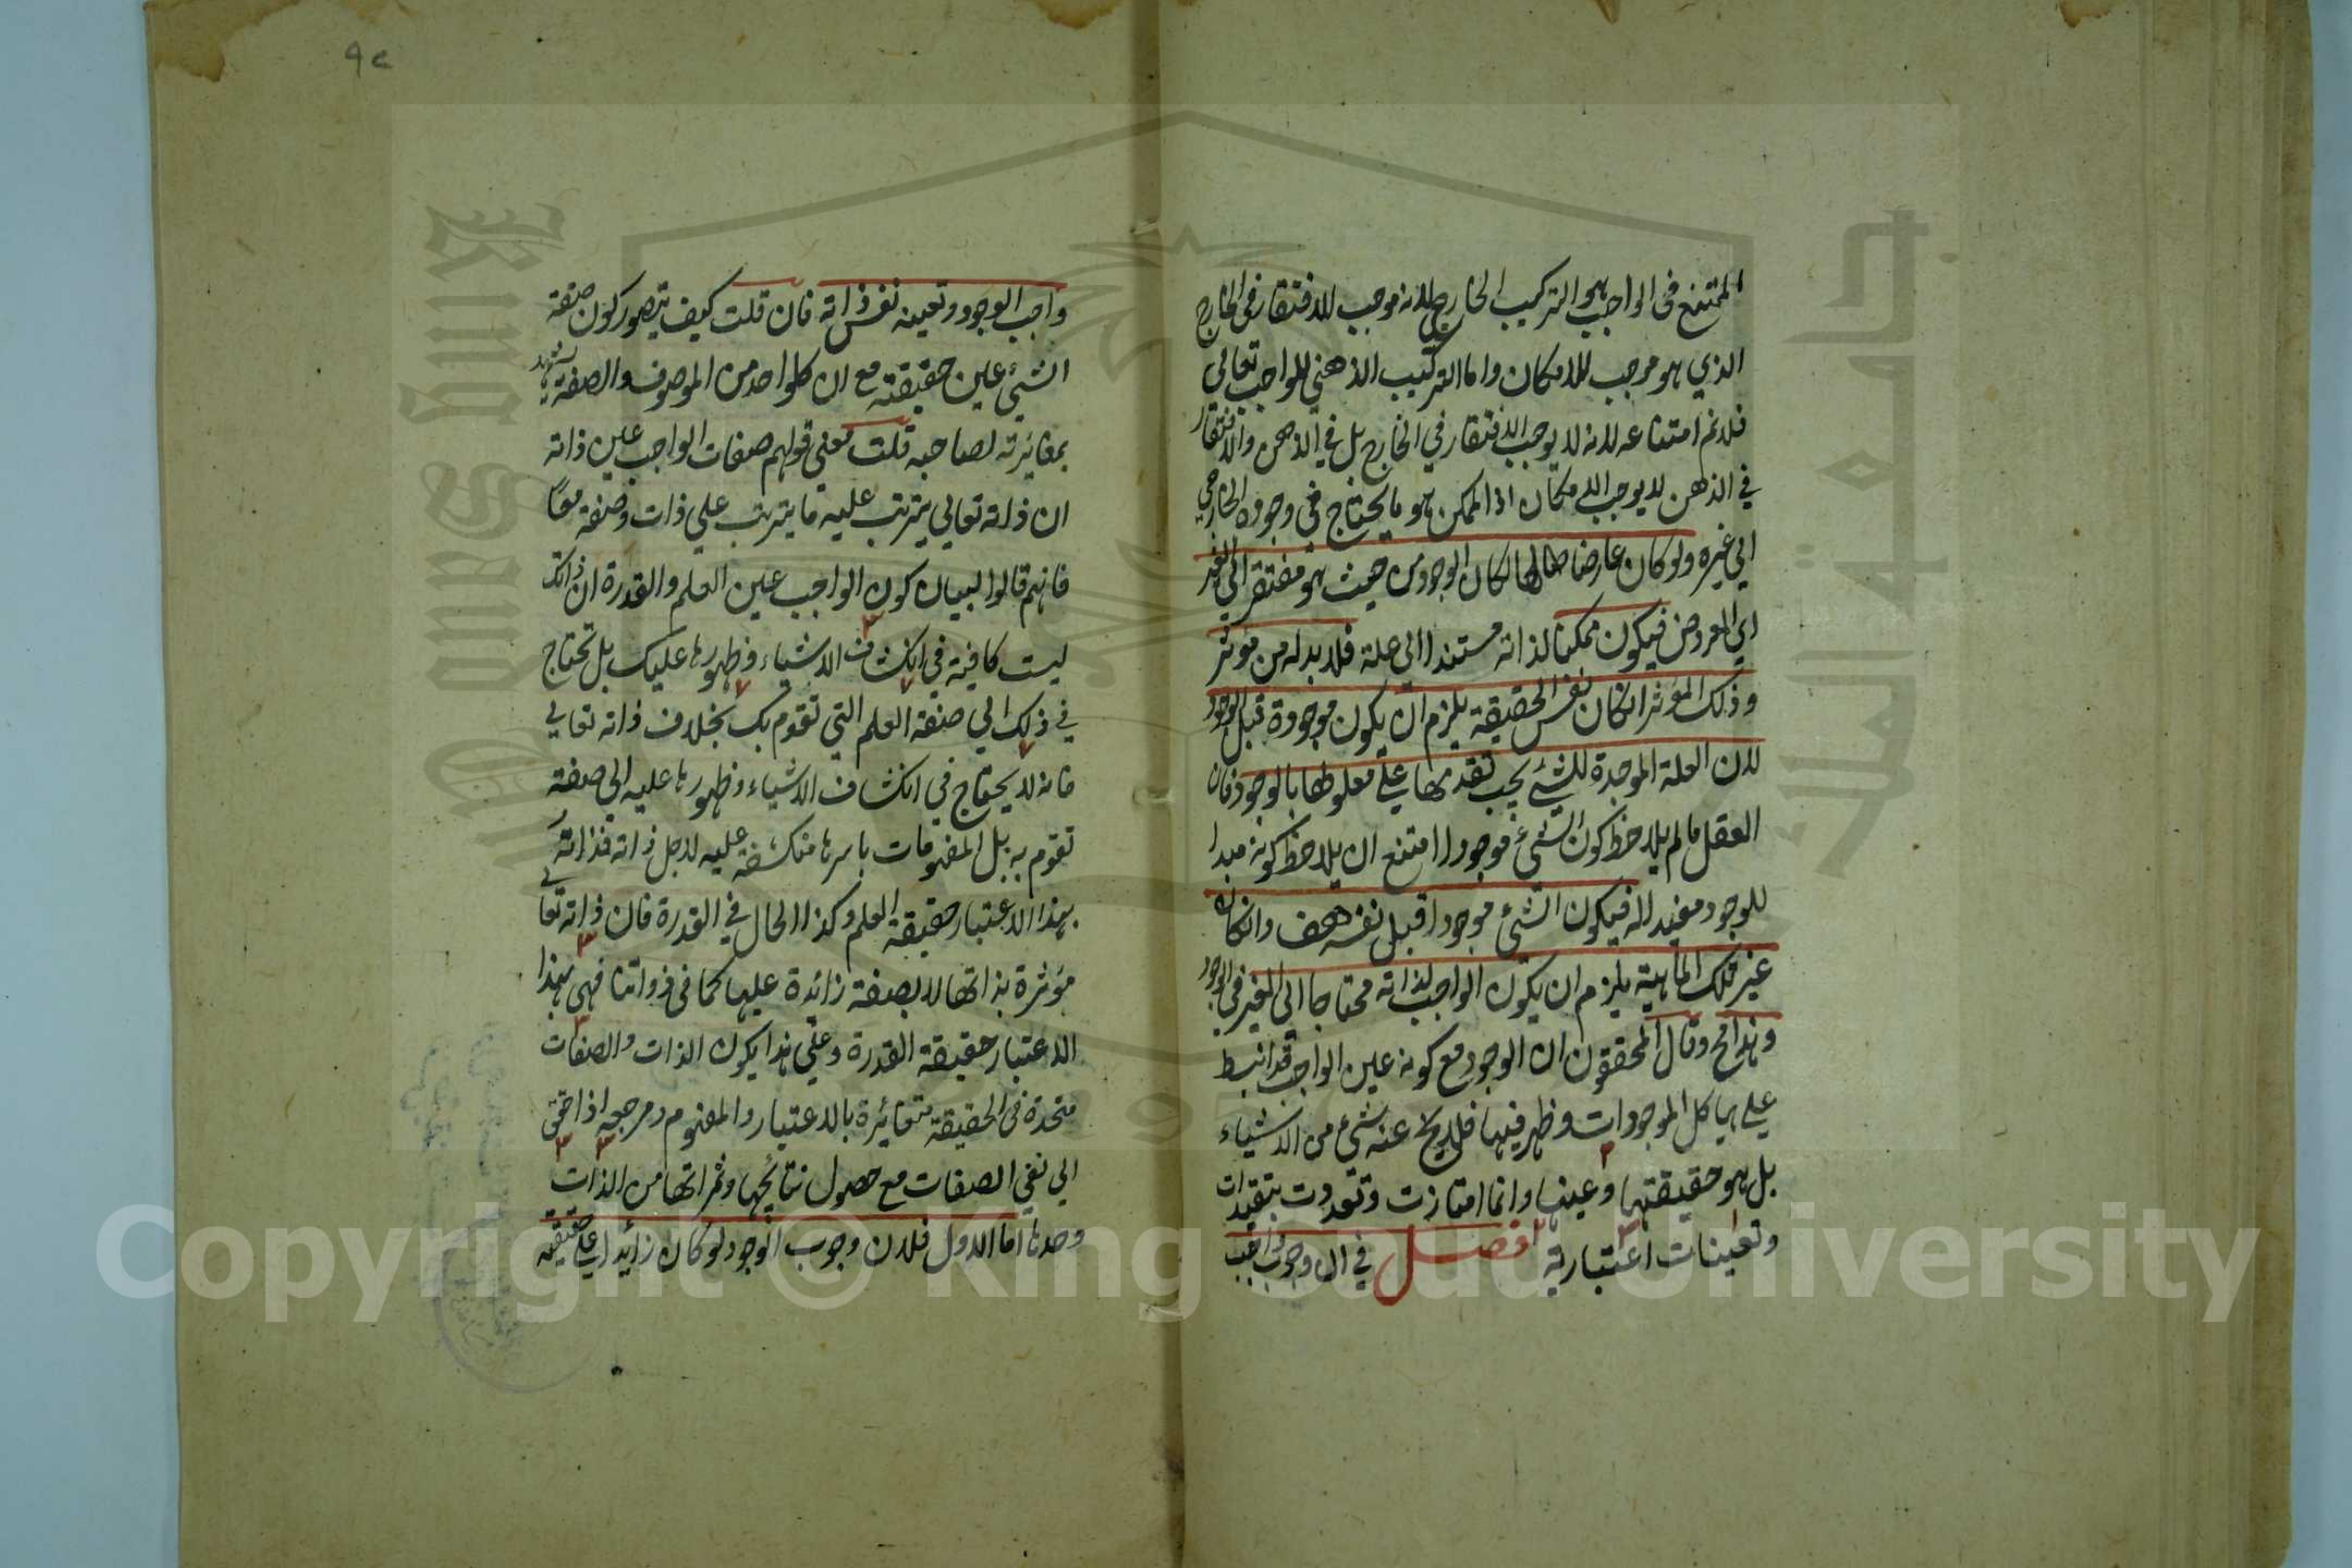 الممتنع فى الواجب هو التركيب الخارجى لانه موجب للافتقار فى الخارج
الذي هو موجب للامكان واما التركيب الذهني للواجب تعالى
فلا نم امتناعه لانه لا يوجب الافتقار في الخارج بل في الذهن والافتقار
في الذهن لا يوجب الامكان اذ الممكن هو ما يحتاج في وجوده الخارجي
الي غيره ولو كان عارضا لها لكان الوجود من حيث هو مفتقر الي الغير
اي المعروض فيكون ممكنا لذاته مستندا الى علة فلا بد له من موثر
وذلك المؤثر انكان نفس الحقيقة يلزم ان يكون موجودة قبل الوجود
لان العلة الموجدة للشئ يجب تقدمها علي معلولها بالوجود فان
العقل ما لم يلاحظ كون الشئ موجودا امتنع ان يلاحظ كونه مبدا
للوجود مفيدا له فيكون الشئ موجودا قبل نفسه هف وانكان
غير تلك الماهية يلزم ان يكون الواجب لذاته محتاجا الى الغير في الوجود
وهذا مح وقال المحققون ان الوجود مع كونه عين الواجب قد انبسط
علي هياكل الموجودات وظهر فيها فلا يخ عنه شئ من الاشياء
بل هو حقيقتها وعينها وانما امتازت وتعددت بتقيدات
وتعينات اعتبارية فصل في ان وجوب واجب
٩٢
واجب الوجود وتعينه نفس ذاته فان قلت كيف يتصور كون صفة
الشئ عين حقيقته مع ان كل واحد من الموصوف والصفة يشهد
بمغايرته لصاحبه قلت معنى قولهم صفات الواجب عين ذاته
ان ذاته تعالي يترتب عليه ما يترتب علي ذات وصفة معا
فانهم قالوا لبيان كون الواجب عين العلم والقدرة ان ذاتك
ليست كافية في انكشاف الاشياء وظهورها عليك بل تحتاج
في ذلك الي صفة العلم التي تقوم بك بخلاف ذاته تعالي
فانه لا يحتاج في انكشاف الاشياء وظهورها عليه الي صفة
تقوم به بل المفهومات باسرها منكشفة عليه لاجل ذاته فذاته
بهذا الاعتبار حقيقة العلم وكذا الحال في القدرة فان ذاته تعالي
مؤثرة بذاتها لا بصفة زائدة عليها كما فى ذواتنا فهى بهذا
الاعتبار حقيقة القدرة وعلي هذا يكون الذات والصفات
متحدة فى الحقيقة متغائرة بالاعتبار والمفهوم ومرجعه اذا حقق
الي نفي الصفات مع حصول نتائجها وثمراتها من الذات
وحدها اما الاول فلان وجوب الوجود لو كان زائدا علي حقيقته
Copyright © King Saud University